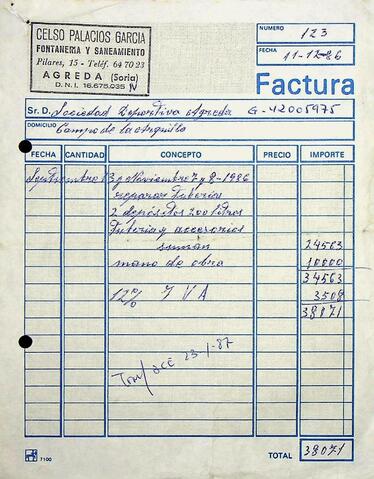 CELSO PALACIOS GARCIA
FONTANERIA Y SANEAMIENTO
Pilares, 15 - Teléf. 64 70 23
AGREDA (Soria)
D.N.I. 16.675.035 W
NUMERO 123
FECHA 11-12-86
Factura
Sr. D. Sociedad Deportiva Agreda G-42005975
DOMICILIO Campo de la
FECHA CANTIDAD CONCEPTO PRECIO IMPORTE
Septiembre 13 y Noviembre 7 y 8-1986
reparar tuberias
2 depósitos 200 litros
tuberia y accesorios
suman 24563
mano de obra 10000
34563
12% IVA 3508
38071
23-1-87
7100
TOTAL 38071